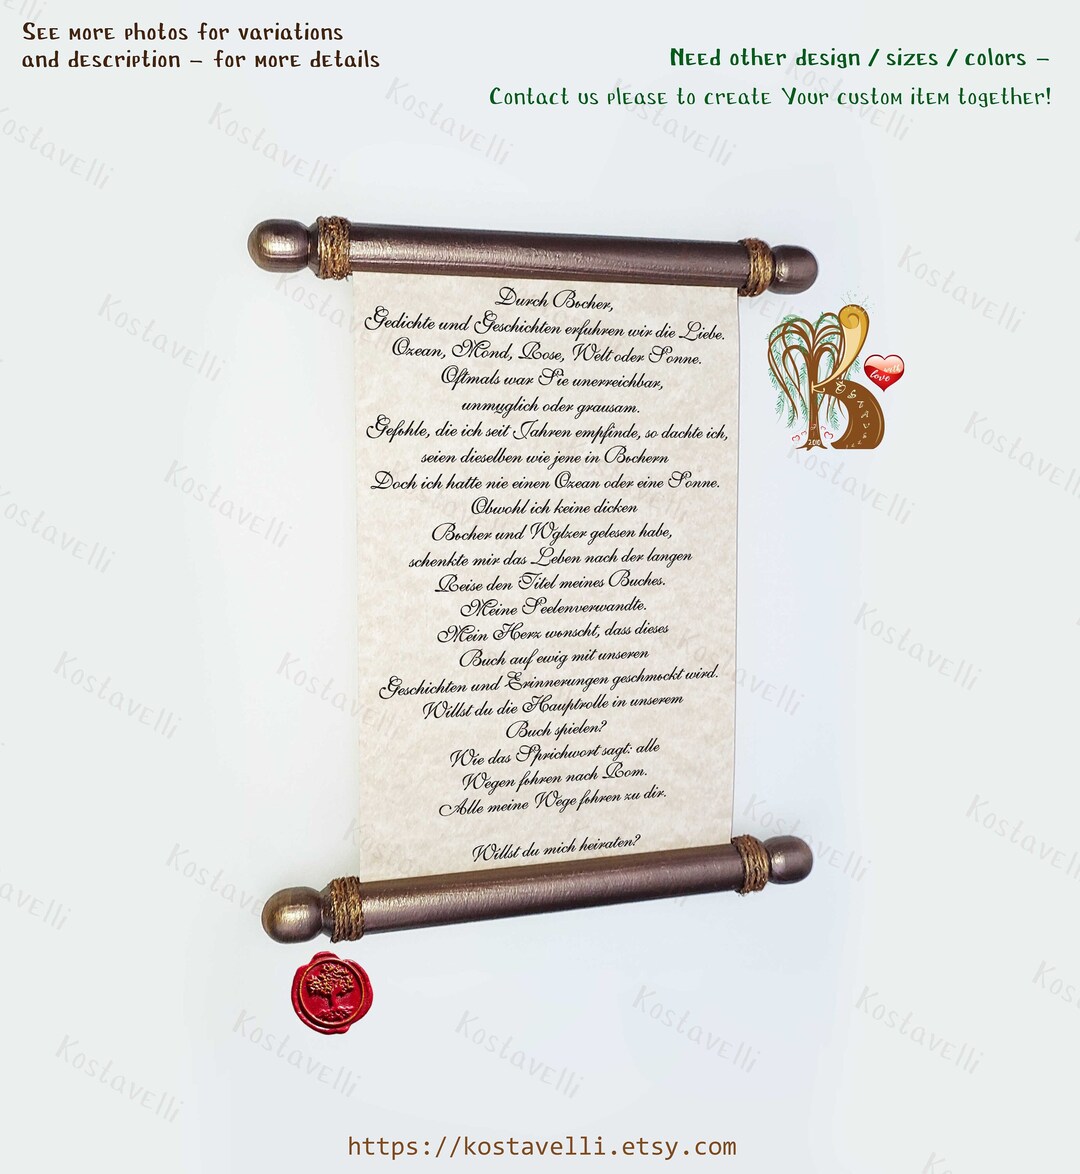 See more photos for variations
and description – for more details
Need other design / sizes / colors –
Contact us please to create Your custom item together!
Durch Bocher,
Gedichte und Geschichten erfuhren wir die Liebe.
Ozean, Mond, Rose, Welt oder Sonne.
Oftmals war Sie unerreichbar,
unmuglich oder grausam.
Gefohle, die ich seit Jahren empfinde, so dachte ich,
seien dieselben wie jene in Bochern
Doch ich hatte nie einen Ozean oder eine Sonne.
Obwohl ich keine dicken
Bocher und Wglzer gelesen habe,
schenkte mir das Leben nach der langen
Reise den Titel meines Buches.
Meine Seelenverwandte.
Mein Herz wonscht, dass dieses
Buch auf ewig mit unseren
Geschichten und Erinnerungen geschmockt wird.
Willst du die Hauptrolle in unserem
Buch spielen?
Wie das Sprichwort sagt: alle
Wegen fohren nach Rom.
Alle meine Wege fohren zu dir.
Willst du mich heiraten?
with
love
2010
Kostavelli
https://kostavelli.etsy.com